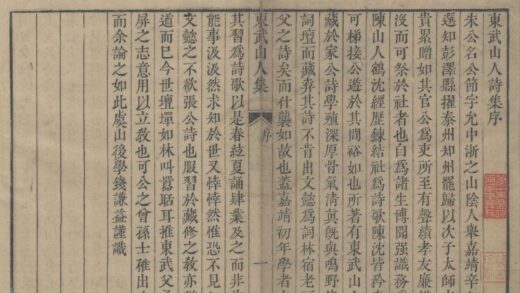 東武山人詩集序
朱公名公節字允中浙之山陰人舉嘉靖辛
選知彭澤縣擢泰州知州罷歸以次子太師
貴累贈如其官公為吏所至有聲績孝友廉
沒而可祭於社者也自為諸生博聞强識務
陳山人鶴沈經歷鍊結社為詩歌陳沈皆矜
可梯接公遊於其間裕如也所著有東武山人
藏於家公詩學殖深厚骨氣清眞與鳴野
詞壇而藏弆其詩不肯出文懿為詞林宿老
父之詩矣而什襲如故也蓋嘉靖初年學者
東武山人集
序
一
其習為詩歌以是春絃夏誦肄業及之而非
能事汲汲然求知於世又悻悻然惟恐不見
文懿之不欲張公詩也服習於藏修之敎亦
道而已今世壇墠如林叫囂聒耳推東武父
屏之志意用以立敎也可公之曾孫士稚出
而余論之如此虞山後學錢謙益謹識